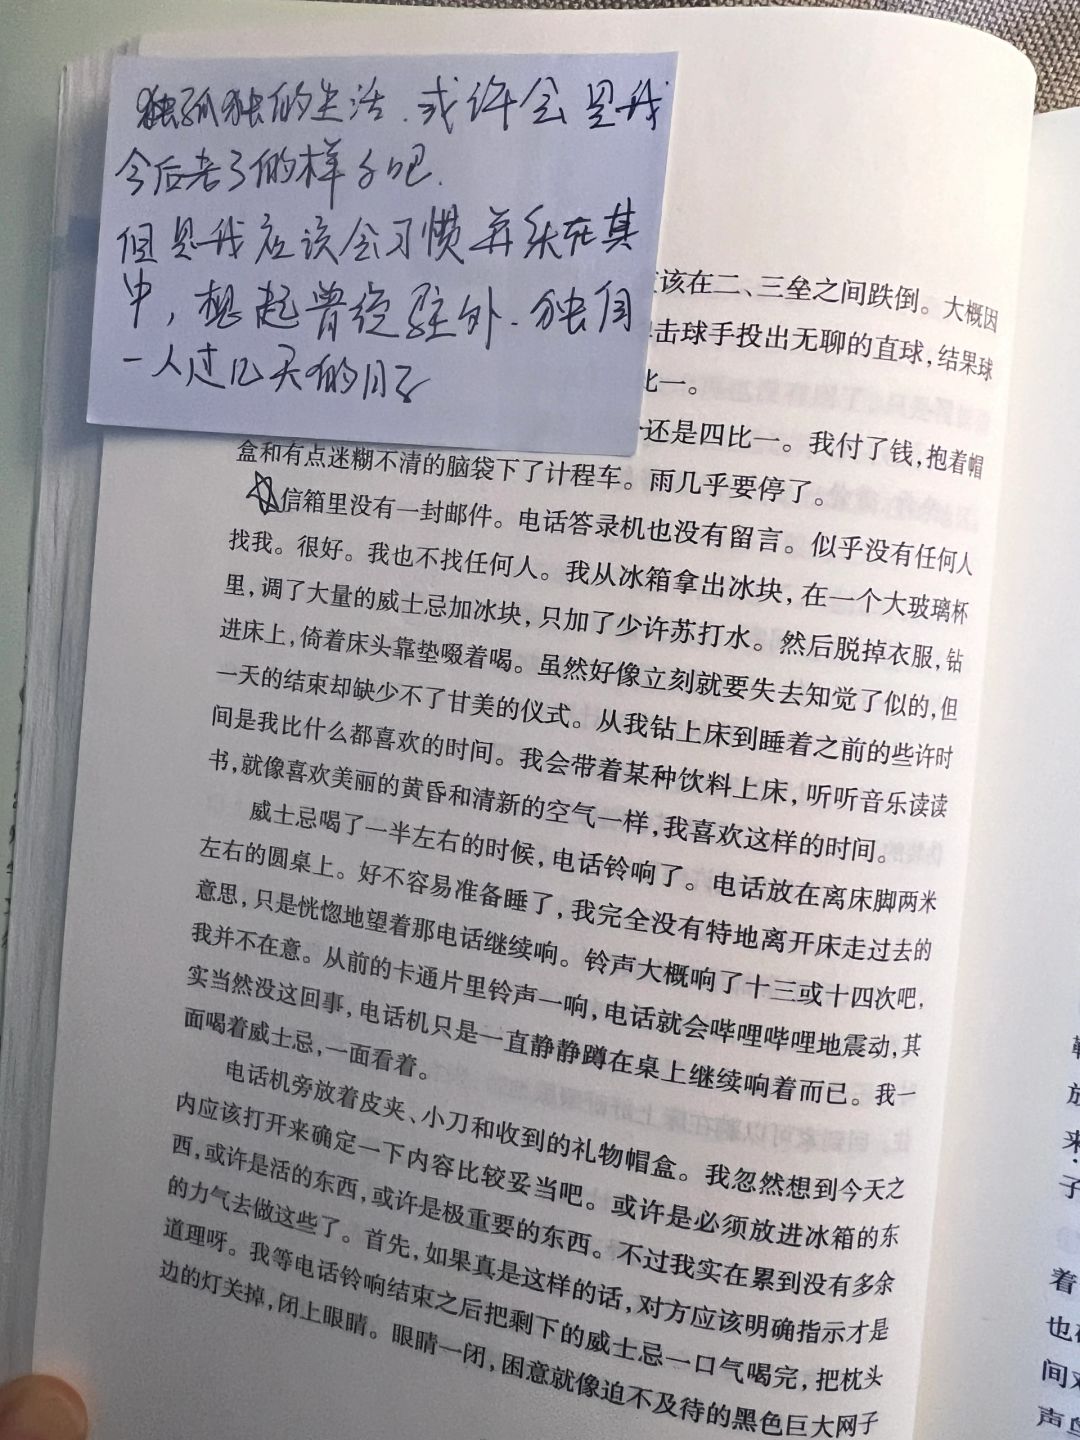 独孤独的生活.或许会是我
今后老了的样子吧.
但是我应该会习惯并乐在其
中,想起曾经驻外.独自
一人过几天的日子
该在二、三垒之间跌倒。大概因
击球手投出无聊的直球,结果球
比一。
还是四比一。我付了钱,抱着帽
盒和有点迷糊不清的脑袋下了计程车。雨几乎要停了。
信箱里没有一封邮件。电话答录机也没有留言。似乎没有任何人
找我。很好。我也不找任何人。我从冰箱拿出冰块,在一个大玻璃杯
里,调了大量的威士忌加冰块,只加了少许苏打水。然后脱掉衣服,钻
进床上,倚着床头靠垫啜着喝。虽然好像立刻就要失去知觉了似的,但
一天的结束却缺少不了甘美的仪式。从我钻上床到睡着之前的些许时
间是我比什么都喜欢的时间。我会带着某种饮料上床,听听音乐读读
书,就像喜欢美丽的黄昏和清新的空气一样,我喜欢这样的时间。
威士忌喝了一半左右的时候,电话铃响了。电话放在离床脚两米
左右的圆桌上。好不容易准备睡了,我完全没有特地离开床走过去的
意思,只是恍惚地望着那电话继续响。铃声大概响了十三或十四次吧,
我并不在意。从前的卡通片里铃声一响,电话就会哔哩哔哩地震动,其
实当然没这回事,电话机只是一直静静蹲在桌上继续响着而已。我一
面喝着威士忌,一面看着。
电话机旁放着皮夹、小刀和收到的礼物帽盒。我忽然想到今天之
内应该打开来确定一下内容比较妥当吧。或许是必须放进冰箱的东
西,或许是活的东西,或许是极重要的东西。不过我实在累到没有多余
的力气去做这些了。首先,如果真是这样的话,对方应该明确指示才是
道理呀。我等电话铃响结束之后把剩下的威士忌一口气喝完,把枕头
边的灯关掉,闭上眼睛。眼睛一闭,困意就像迫不及待的黑色巨大网子
放
来
子
着
也
间
声